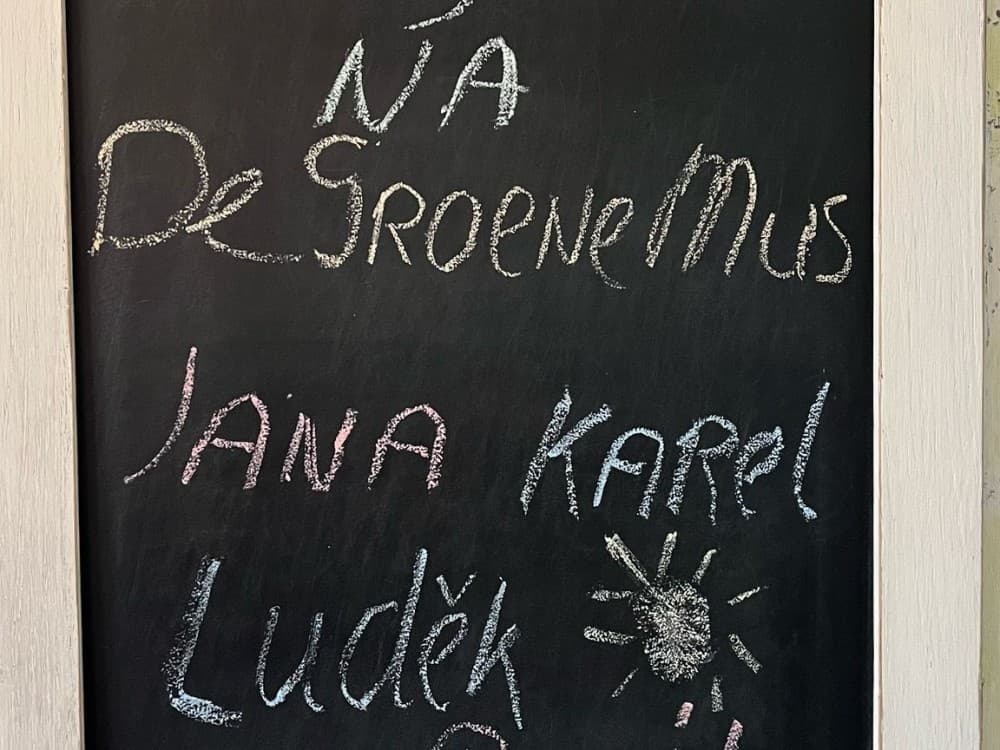 NA
De GROeNe Mus
JANA KARel
Luděk